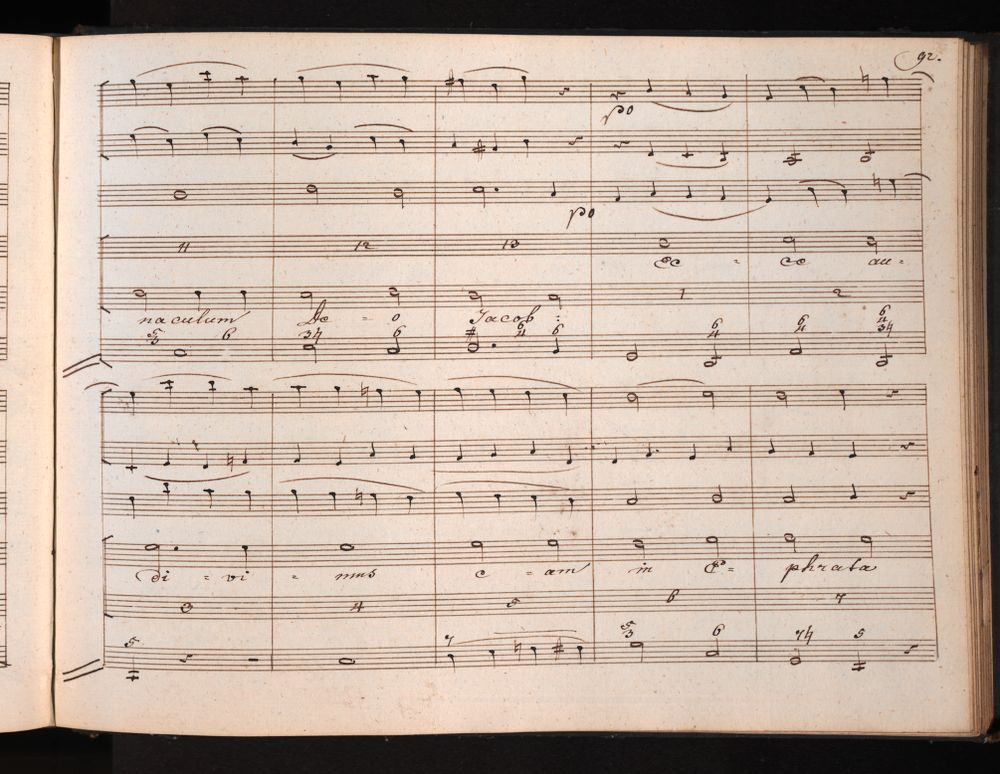 92.
po
po
11 12 13
Ec = ce au =
1 2
naculum De = o Jacob :
5 3 6 34 6 # 6 4 6 6 4 6 4 6 4 34
di = vi = mus e = am in E = phrata
3 4 5 6 7
5 7 5 3 6 74 5